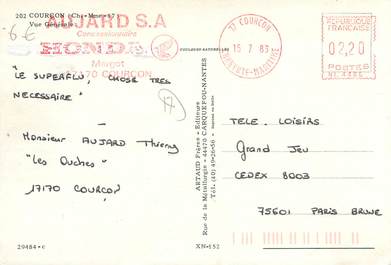 202 COURÇON (Chte-Mme)
Vue Générale
6€
AUJARD S.A
Concessionnaire
HONDA
Margot
17170 COURÇON
17 COURÇON
15 7 86
CHARENTE-MARITIME
REPUBLIQUE
FRANCAISE
02,20
POSTES
"LE SUPERFLU, CHOSE TRÈS
NECESSAIRE"
17
Monsieur AUJARD Thierry
"Les Ouches"
17170 COURÇON
ARTAUD Frères - Éditeurs
Rue de la Métallurgie - 44470 CARQUEFOU-NANTES
Tél. (40) 49-26-56
TELE. LOISIRS
Grand Jeu
CEDEX 8003
75601 PARIS BRUNE
29484 • c
XN-152